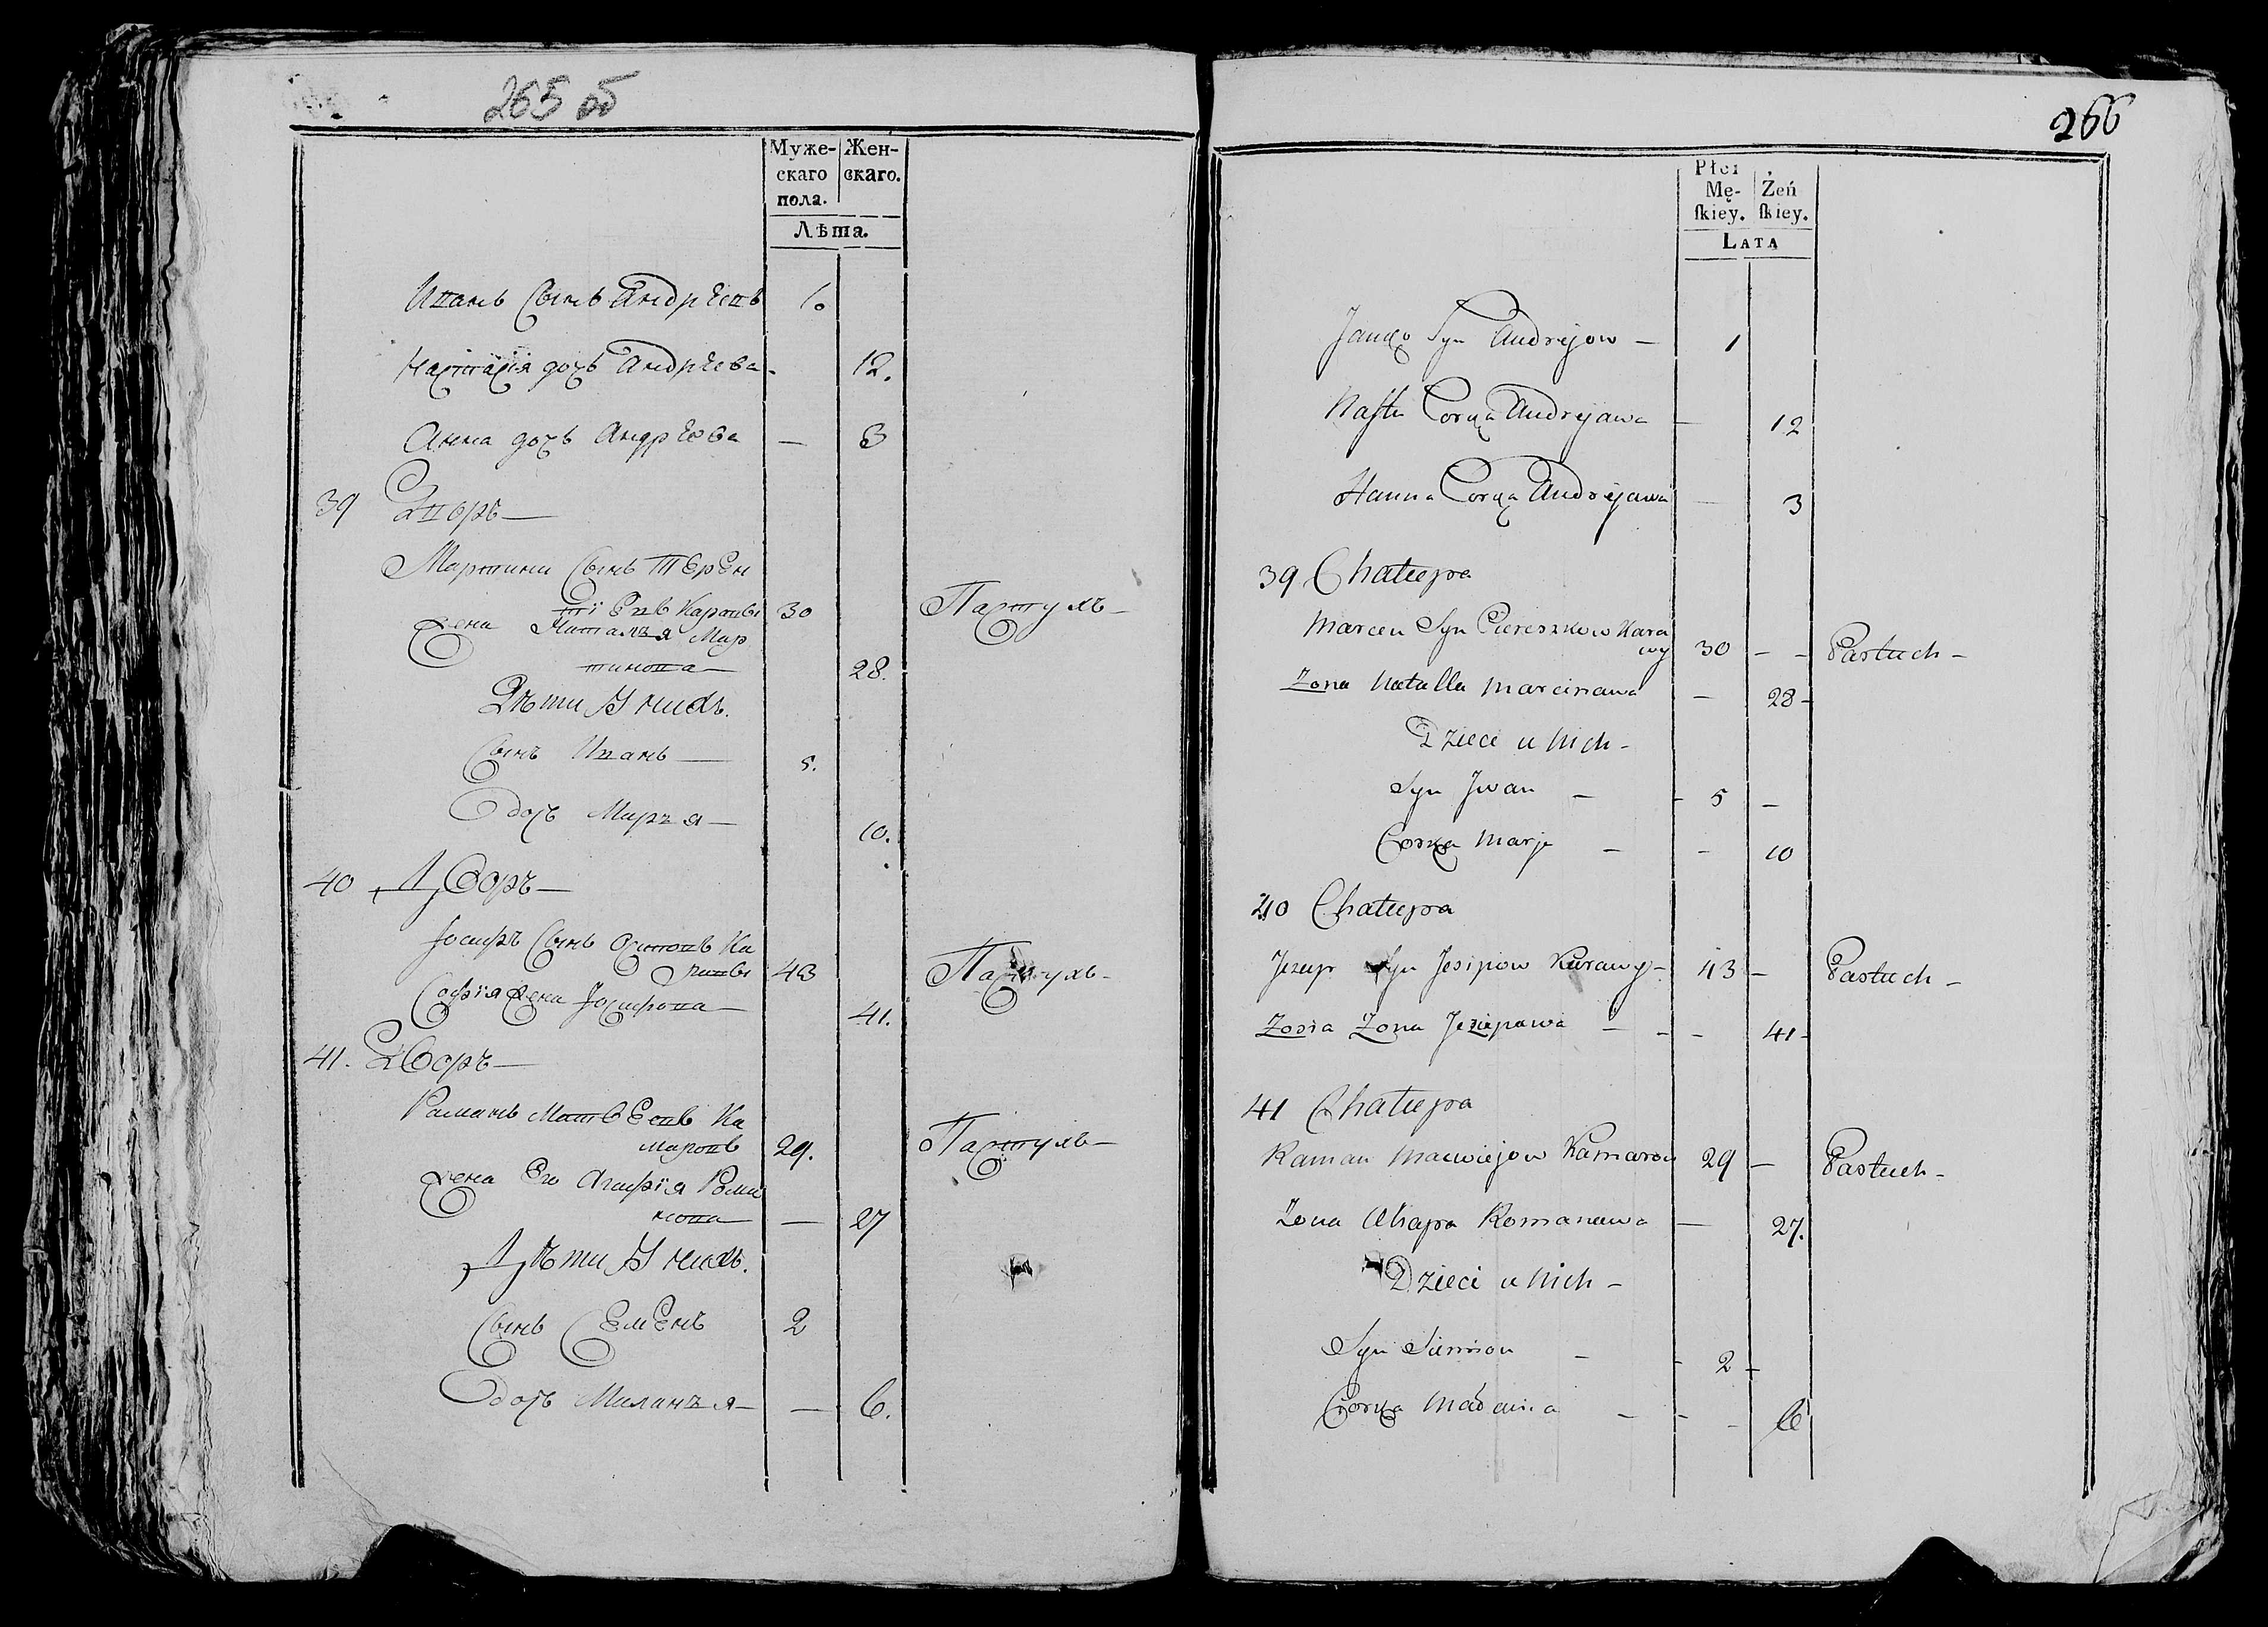 265 об
Муже-
скаго
пола.
Жен-
скаго.
Лѣта.
Иванъ Сынъ Андрѣевъ 1.
Настасія дочь Андрѣева - 12.
Анна дочь Андрѣева — 3
39 Дворъ —
Мартинъ Сынъ Терен
тіевъ 30 Пастухъ —
жена Наталья Мар
тинова — 28.
Дѣти У нихъ.
Сынъ Иванъ — 5.
дочь Марья — 10.
40 Дворъ —
Іосифъ Сынъ Осиповъ Ка
43 Пастухъ -
Софія жена Іосифова — 41.
41. Дворъ —
Раманъ Матвеевъ Ка
маровъ 29. Пастухъ —
жена Его Агафія Рома
нова — — 27
Дѣти У нихъ.
Сынъ Семенъ 2
дочь Миланья — — 6.
266
Płci
Mę-
ſkiey.
Żeń
ſkiey.
LATA
Syn Andrejow — 1
Nasta Corka Andrejawa — 12
Hanna Corka Andrejawa — 3
39 Chatupa
Marcen Syn Kara
wy 30 - - Pastuch -
Zona Natalla Marcinawa — 28 -
Dzieci u Nich -
Syn Jwan — - 5 —
Corka Marja — - 10
40 Chatupa
Jezup Syn Jesipow Karawy - 43 — Pastuch -
Zosia Zona Jezupawa — - - 41 -
41 Chatupa
Raman Maciejow Kamarow 29 — Pastuch -
Zona Ahapa Romanawa — 27.
Dzieci u Nich -
Syn Siemion — - 2 -
Corka — - - 6